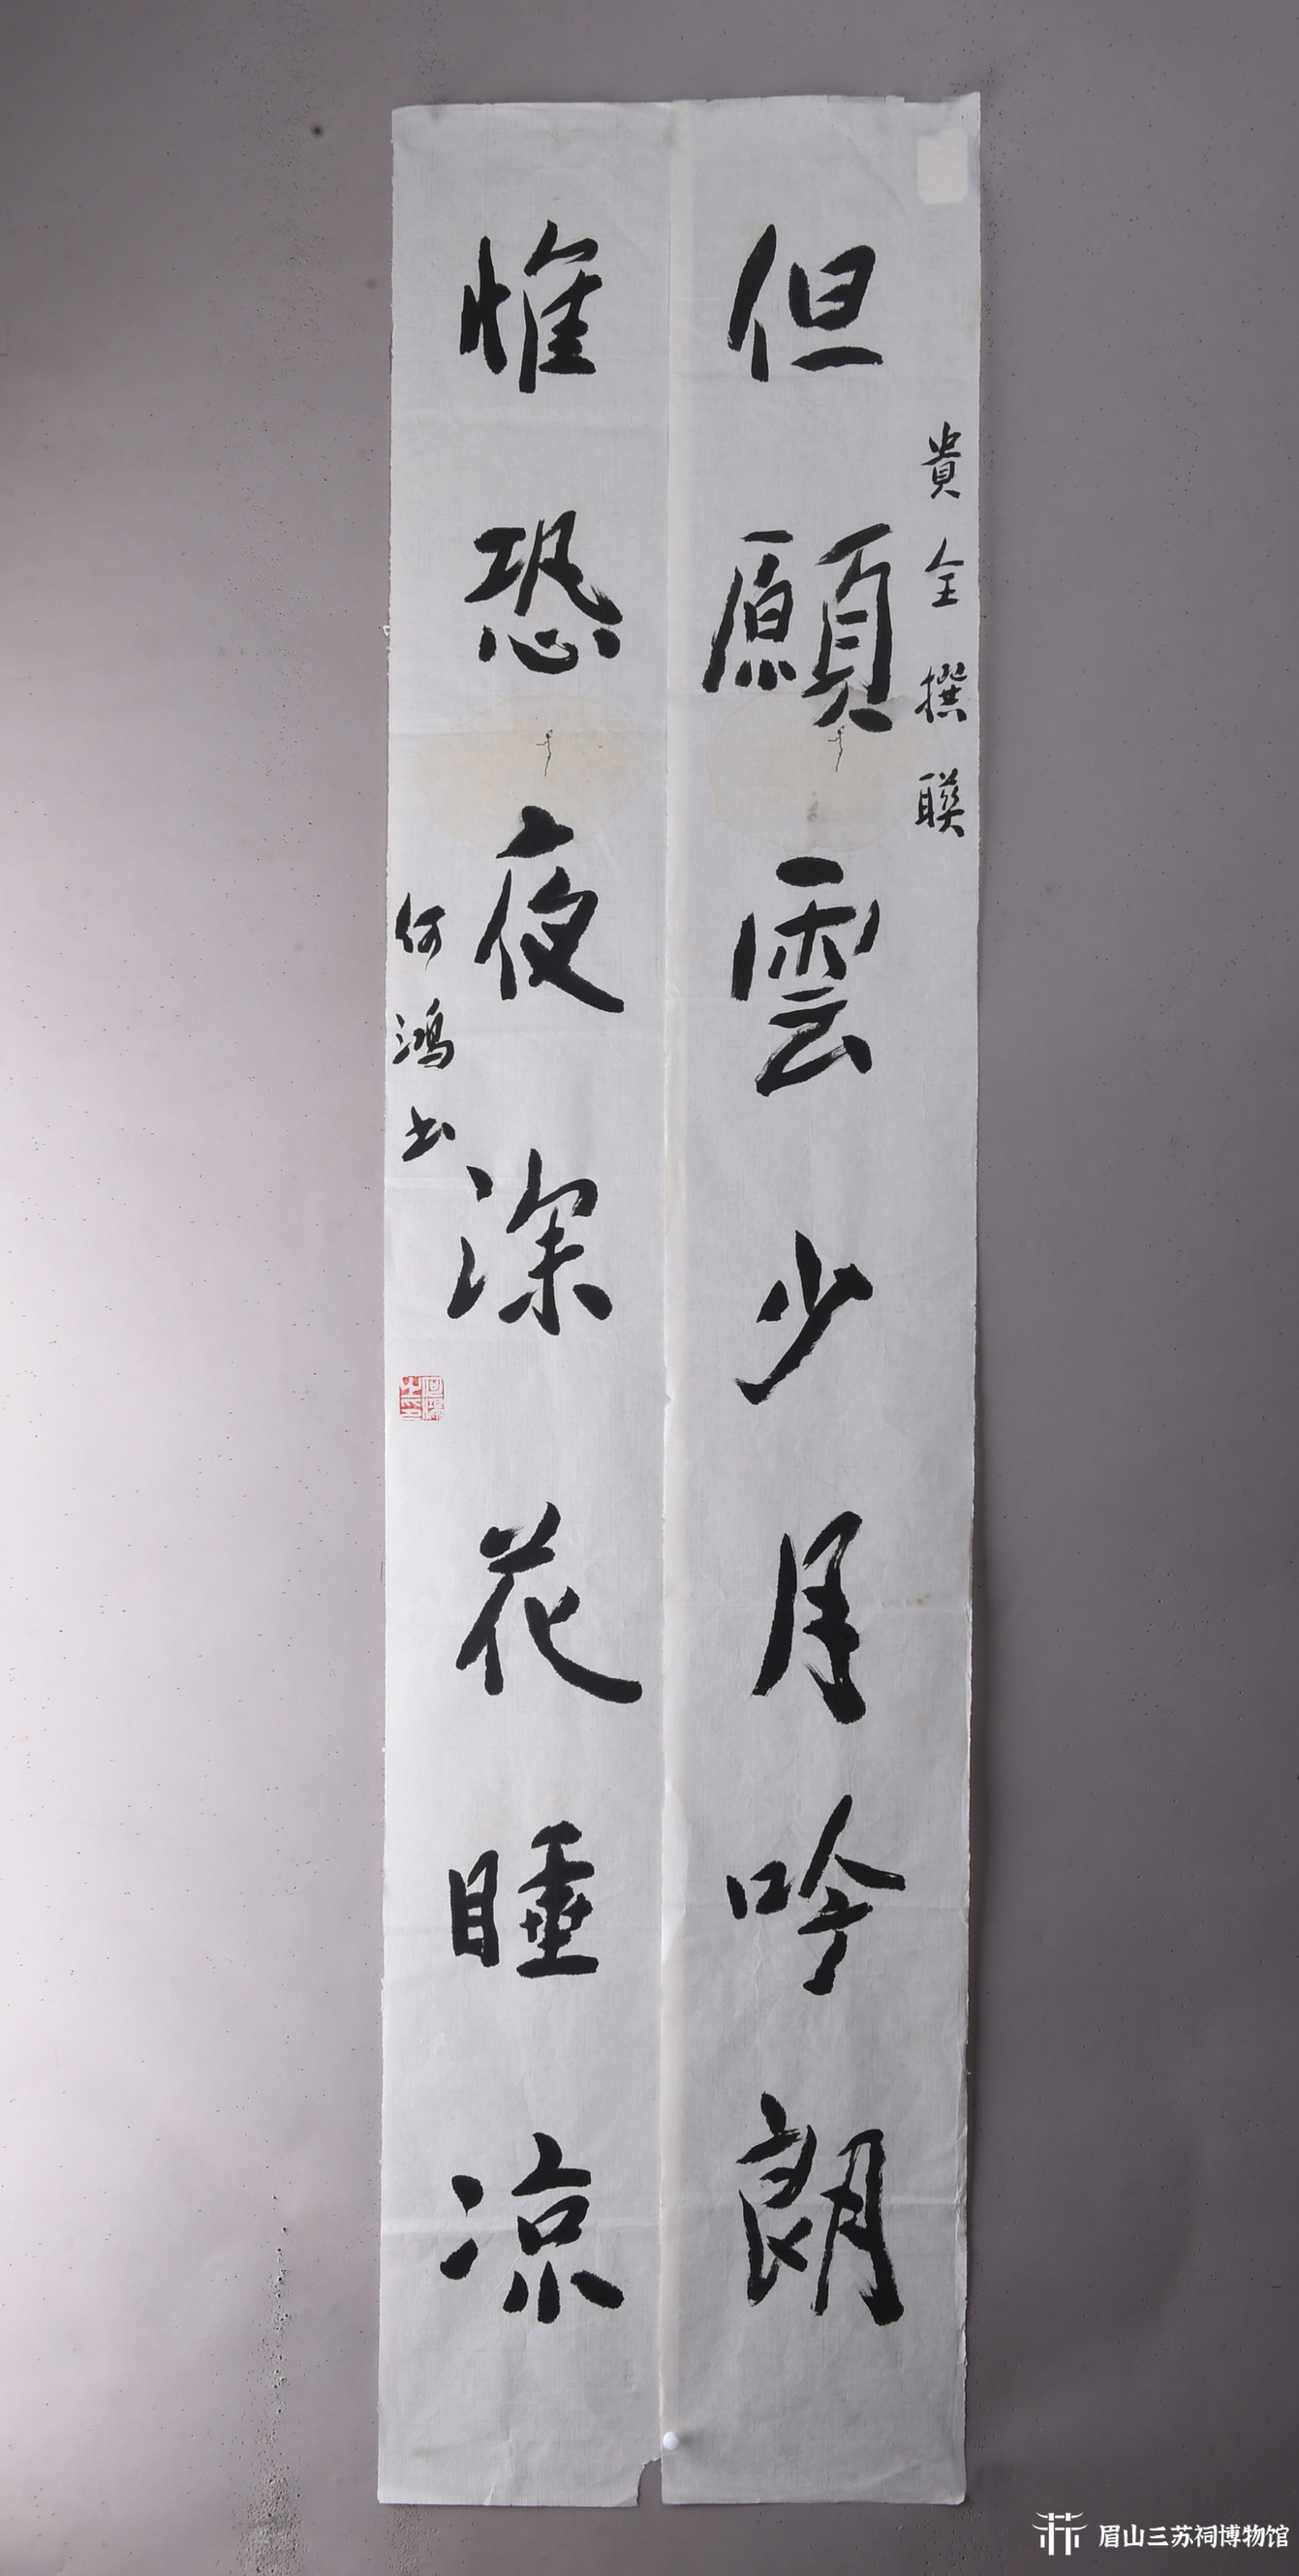 貴全撰聯
但願雲少月吟朗
惟恐夜深花睡凉
何鸿书
何鴻之印
眉山三苏祠博物馆